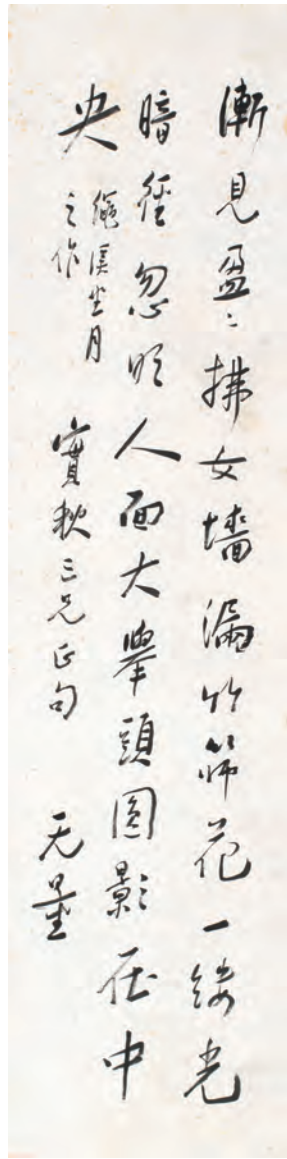 漸見盈々拂女墻漏竹篩花一縷光
暗徑忽明人面大舉頭圓影在中
央
繩溪坐月
之作
實秋三兄正句
无量